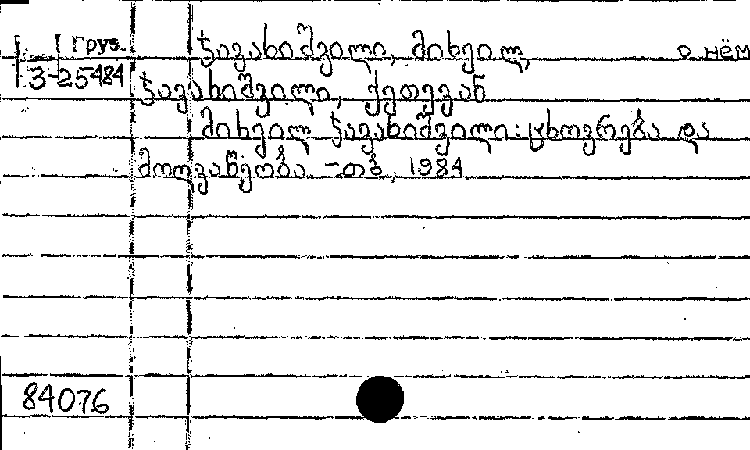 Груз. ჯავახიშვილი, მიხეილ, о нём
3-25484 ჯავახიშვილი, ქეთევან
მიხეილ ჯავახიშვილი: ცხოვრება და
მოღვაწეობა. - თბ., 1984
84076